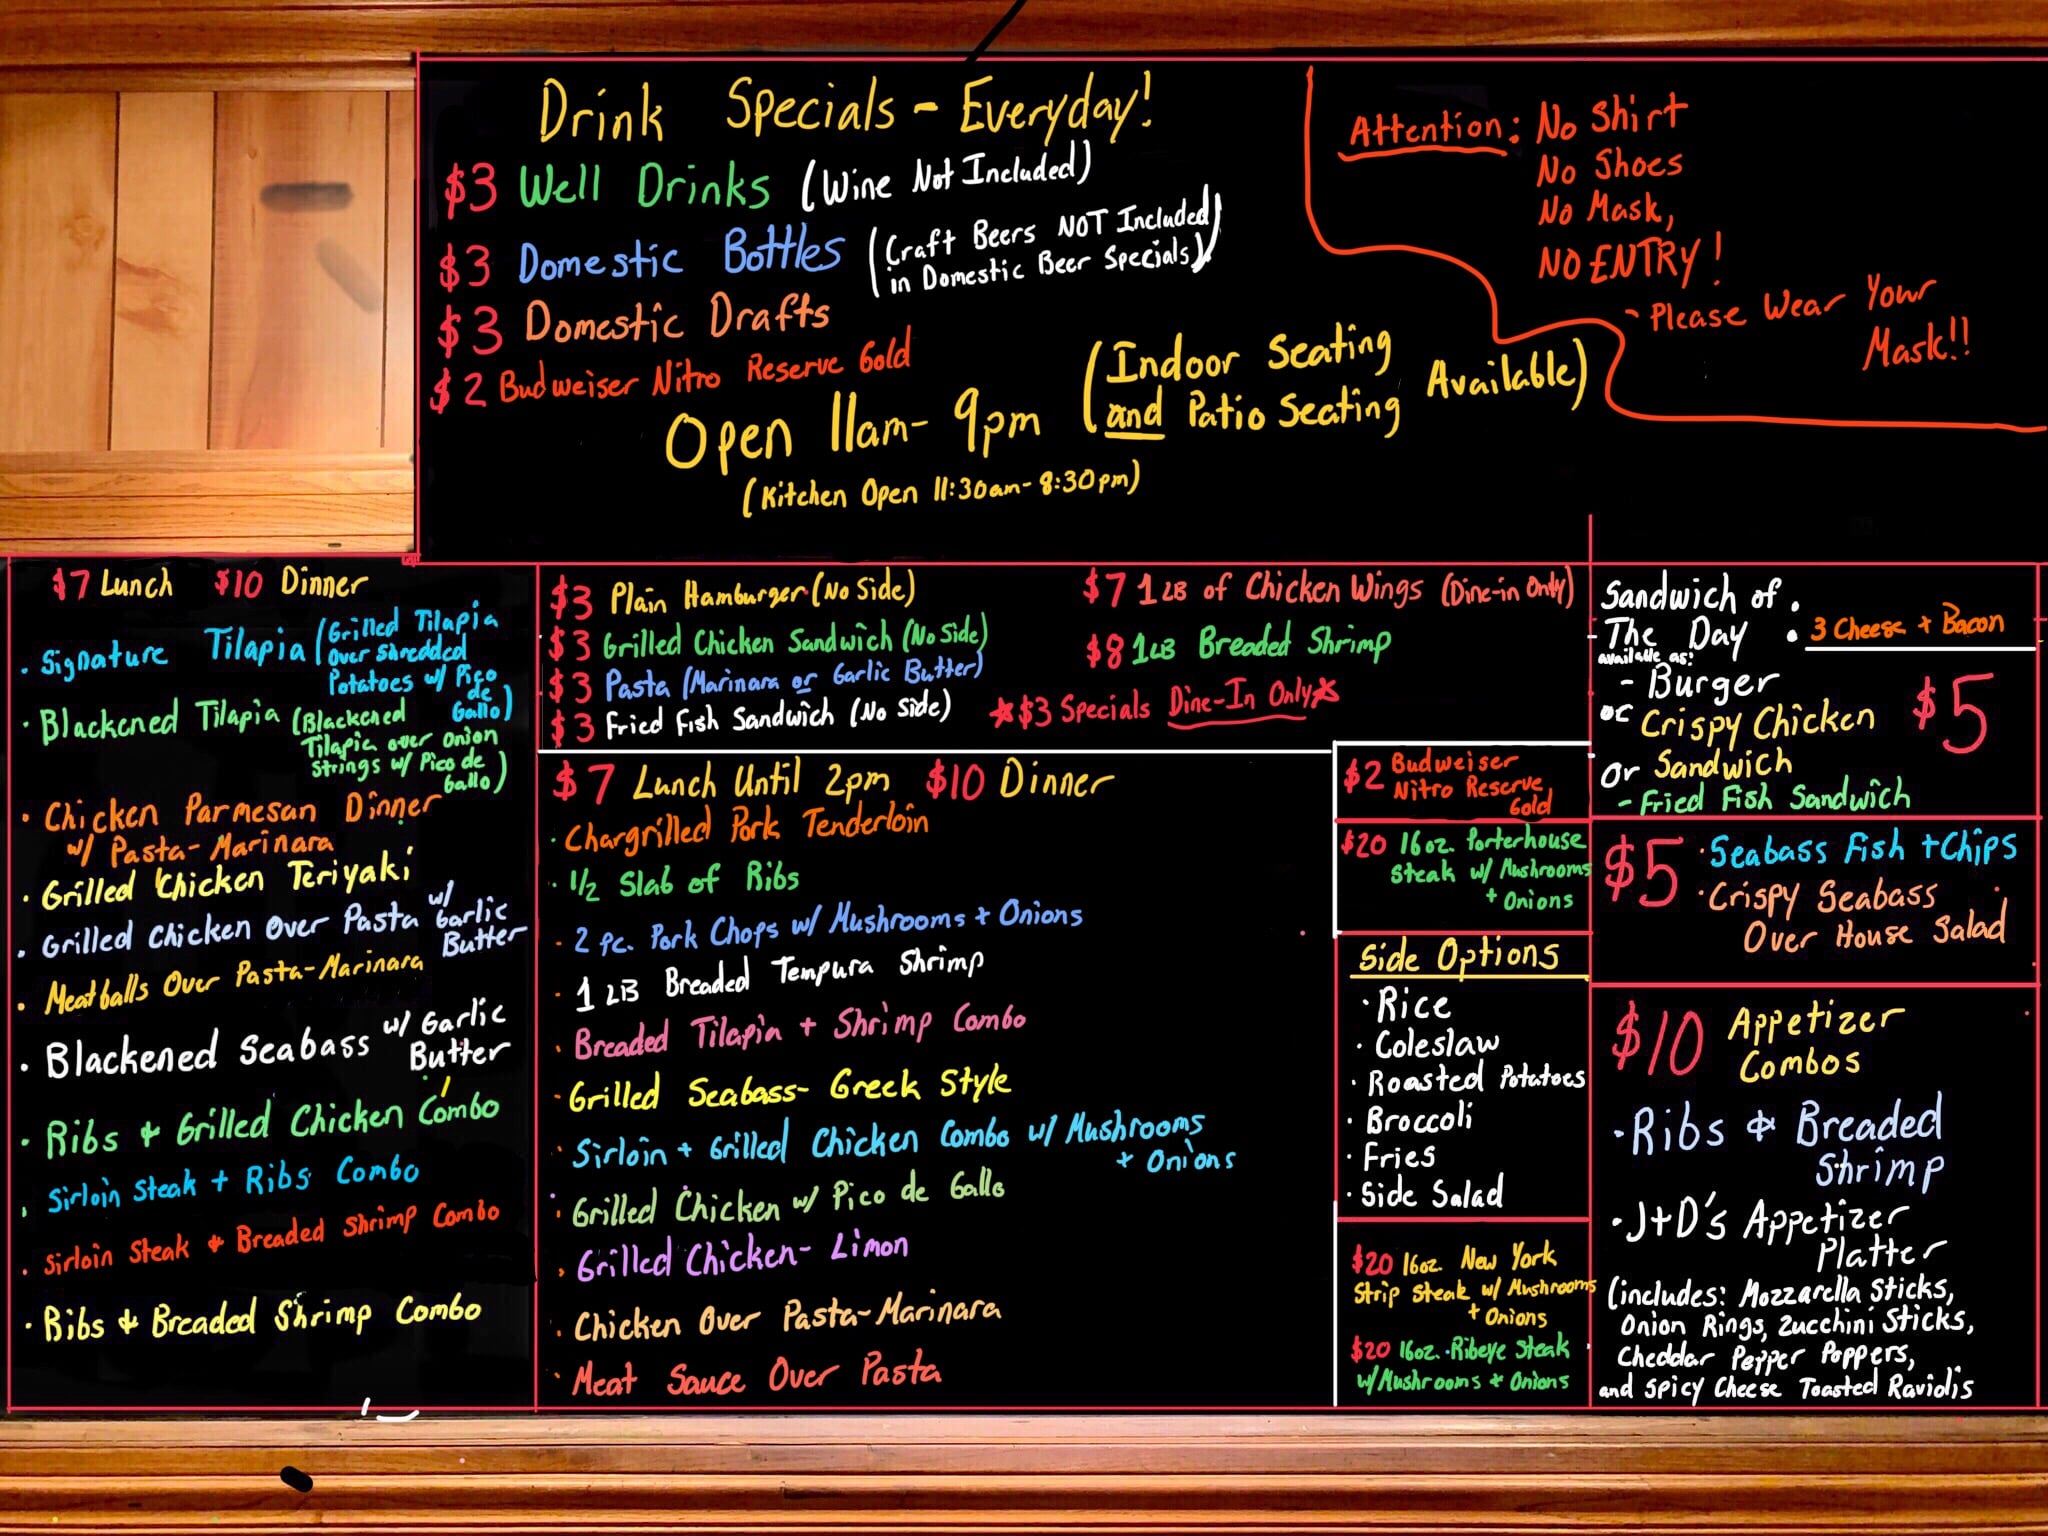 Drink Specials - Everyday!
$3 Well Drinks (Wine Not Included)
$3 Domestic Bottles (Craft Beers NOT Included
in Domestic Beer Specials)
$3 Domestic Drafts
$2 Budweiser Nitro Reserve Gold
Open 11am - 9pm (Indoor Seating
and Patio Seating Available)
(Kitchen Open 11:30am - 8:30pm)
Attention: No Shirt
No Shoes
No Mask,
NO ENTRY!
- Please Wear Your
Mask!!
$7 Lunch $10 Dinner
· Signature Tilapia (Grilled Tilapia
Over Shredded
Potatoes w/ Pico
de
Gallo)
· Blackened Tilapia (Blackened
Tilapia over Onion
Strings w/ Pico de
Gallo)
· Chicken Parmesan Dinner
w/ Pasta - Marinara
· Grilled Chicken Teriyaki
· Grilled Chicken Over Pasta w/
Garlic
Butter
· Meatballs Over Pasta - Marinara
· Blackened Seabass w/ Garlic
Butter
· Ribs & Grilled Chicken Combo
· Sirloin Steak + Ribs Combo
· Sirloin Steak & Breaded Shrimp Combo
· Ribs & Breaded Shrimp Combo
$3 Plain Hamburger (No Side)
$3 Grilled Chicken Sandwich (No Side)
$3 Pasta (Marinara or Garlic Butter)
$3 Fried Fish Sandwich (No Side)
$7 1LB of Chicken Wings (Dine-in Only)
$8 1LB Breaded Shrimp
*$3 Specials Dine-In Only*
$7 Lunch Until 2pm $10 Dinner
· Chargrilled Pork Tenderloin
· 1/2 Slab of Ribs
· 2 pc. Pork Chops w/ Mushrooms + Onions
· 1 LB Breaded Tempura Shrimp
· Breaded Tilapia + Shrimp Combo
· Grilled Seabass - Greek Style
· Sirloin + Grilled Chicken Combo w/ Mushrooms
+ Onions
· Grilled Chicken w/ Pico de Gallo
· Grilled Chicken - Limon
· Chicken Over Pasta - Marinara
· Meat Sauce Over Pasta
$2 Budweiser
Nitro Reserve
Gold
$20 16oz. Porterhouse
Steak w/ Mushrooms
+ Onions
Side Options
· Rice
· Coleslaw
· Roasted Potatoes
· Broccoli
· Fries
· Side Salad
$20 16oz. New York
Strip Steak w/ Mushrooms
+ Onions
$20 16oz. Ribeye Steak
w/ Mushrooms + Onions
Sandwich of
The Day : 3 Cheese + Bacon
available as:
- Burger
or Crispy Chicken $5
or Sandwich
- Fried Fish Sandwich
$5 · Seabass Fish + Chips
· Crispy Seabass
Over House Salad
$10 Appetizer
Combos
· Ribs & Breaded
Shrimp
· J+D's Appetizer
Platter
(includes: Mozzarella Sticks,
Onion Rings, Zucchini Sticks,
Cheddar Pepper Poppers,
and Spicy Cheese Toasted Raviolis